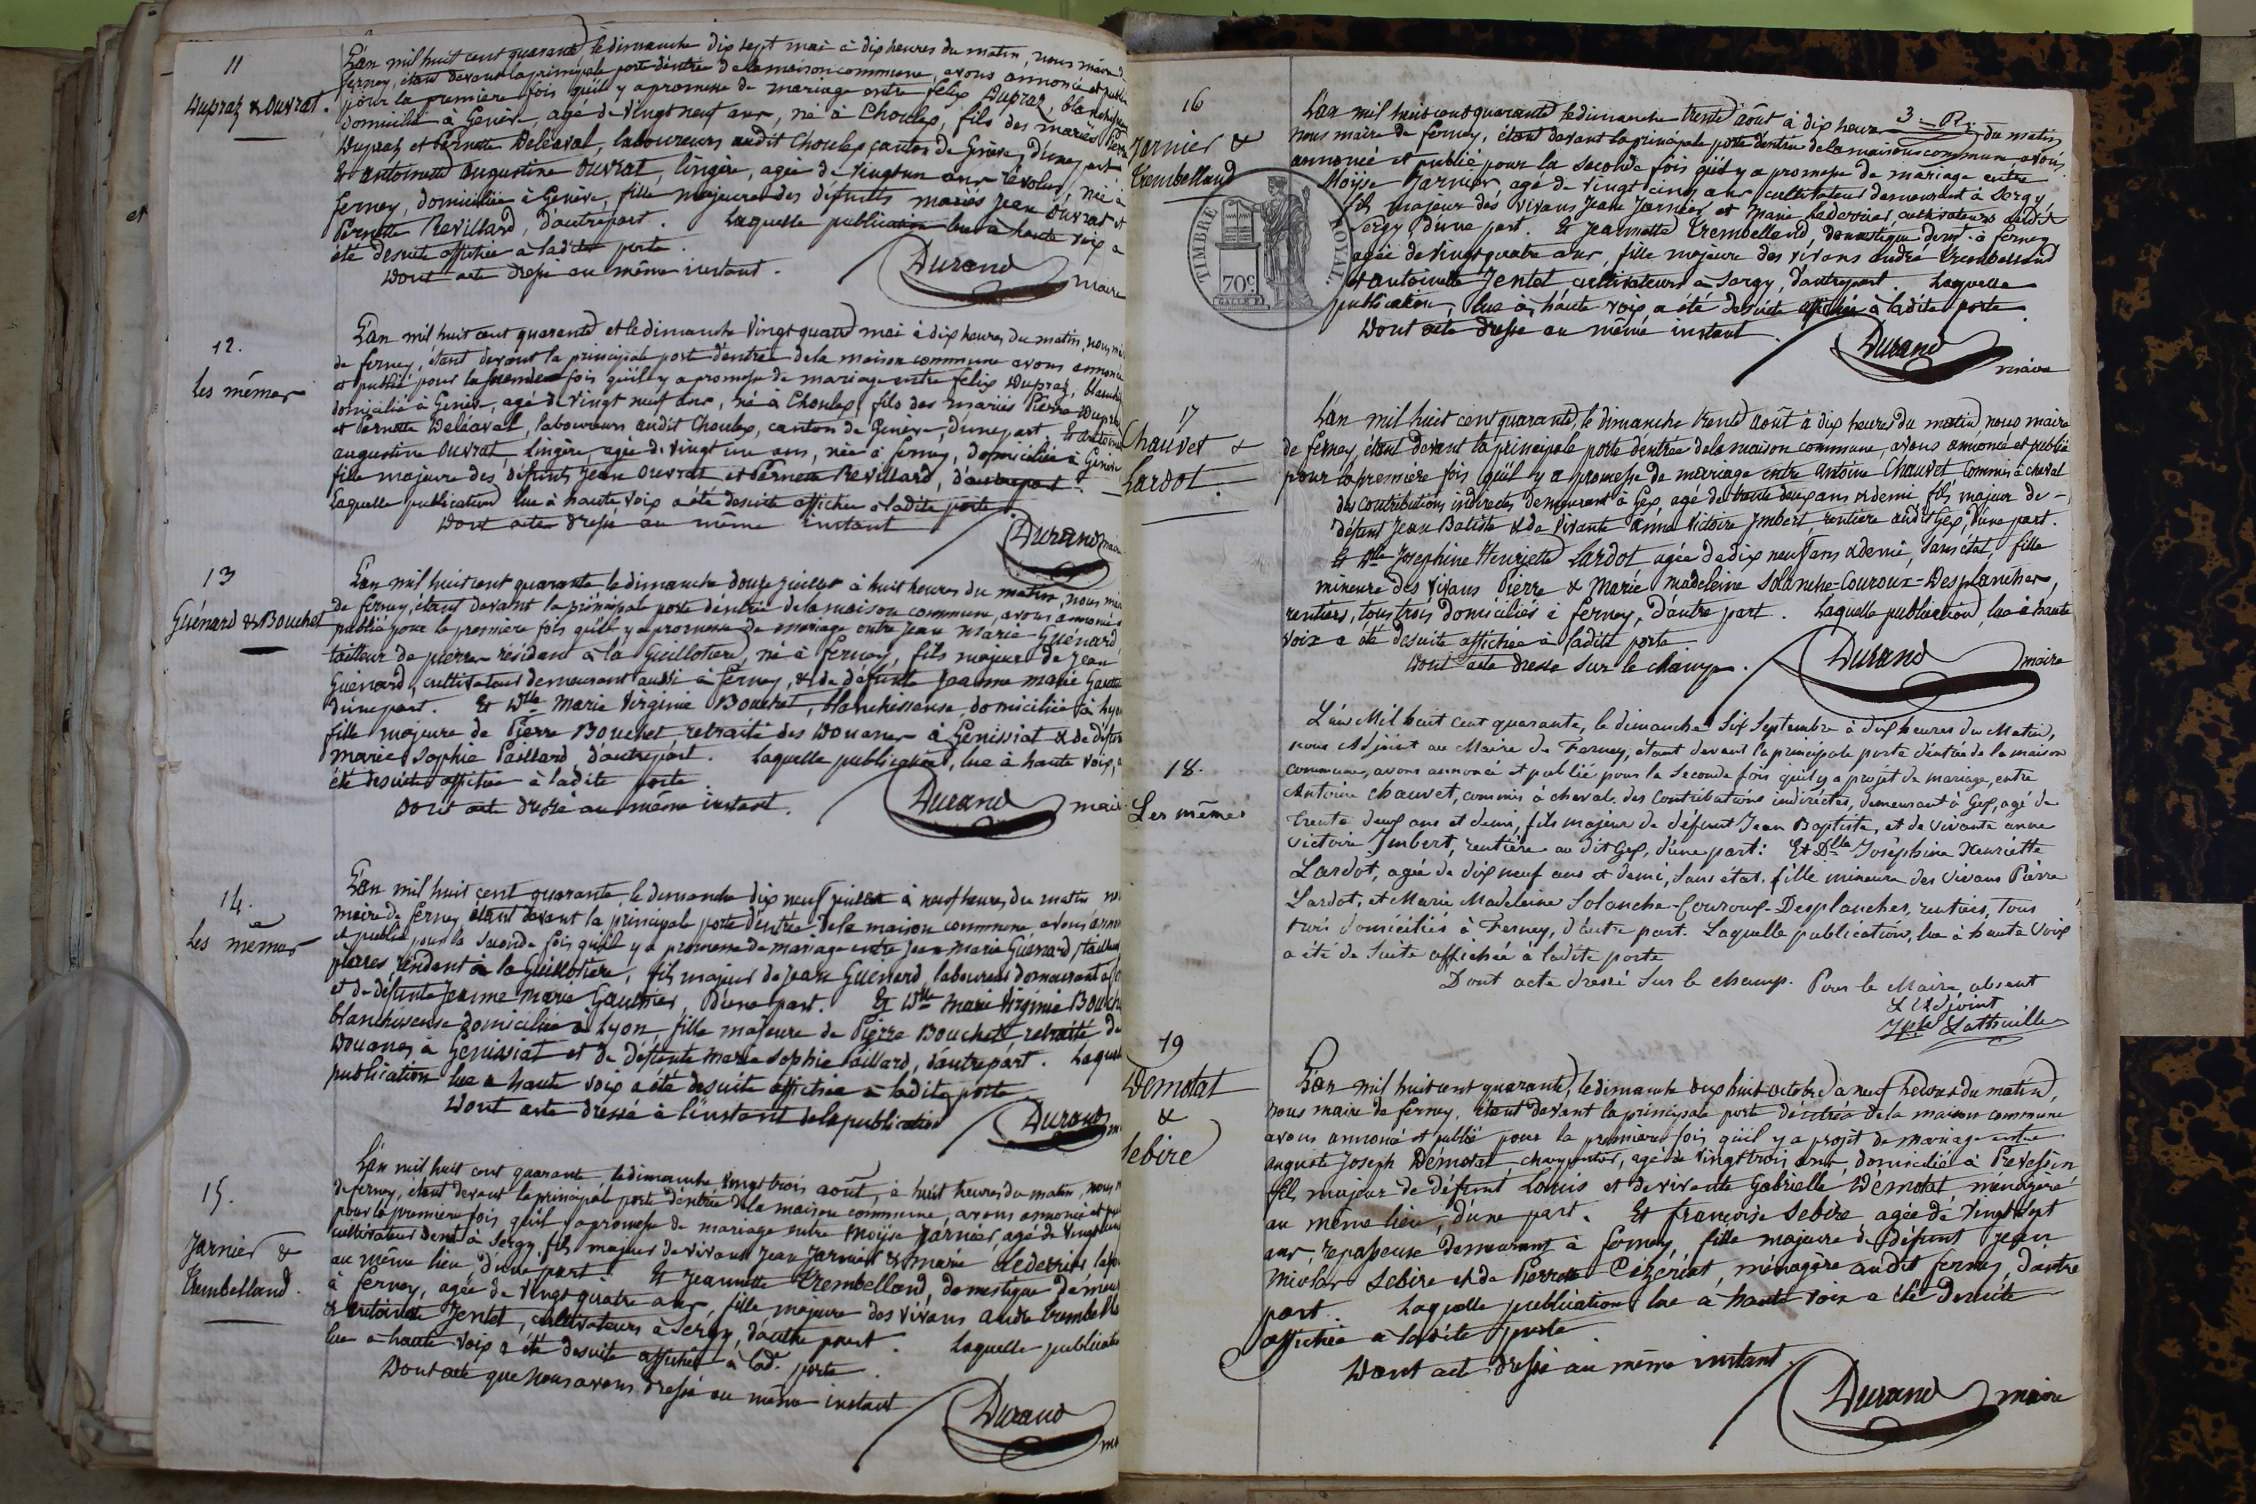 11
Dupraz & Ouvrat.
L'an mil huit cent quarante le dimanche dix sept mai à dix heures du matin, nous maire de
ferney, étant devant la principale porte d'entrée de la maison commune, avons annoncé et publié
pour la première fois qu'il y a promesse de mariage entre felix Dupraz, blanchisseur
domicilié à Genève, agé de vingt neuf ans, né à Choulex, fils des mariés Pierre
Dupraz et Pernette Deléaval, laboureurs audit Choulex canton de Genève, d'une part
Et antoinette augustine Ouvrat, lingère, agée de vingt un ans révolus, née à
ferney, domiciliée à Genève, fille majeure des défunts mariés jean Ouvrat et
Pernette Revillard, d'autre part. Laquelle publication lue à haute voix a
été desuite affichée à ladite porte.
Dont acte dressé au même instant.
Durand maire
12.
Les mêmes
L'an mil huit cent quarante et le dimanche vingt quatre mai à dix heures du matin, nous
de ferney, étant devant la principale porte d'entrée de la maison commune avons annoncé
et publié pour la seconde fois qu'il y a promesse de mariage entre felix Dupraz, blanchis
domicilié à Genève, agé de vingt neuf ans, né à Choulex, fils des mariés Pierre Dupraz
et Pernette Deléaval, laboureurs audit Choulex, canton de Genève, d'une part Et antoinette
augustine Ouvrat, lingère, agée de vingt un ans, née à ferney, domiciliée à Genève
fille majeure des défunts jean Ouvrat et Pernette Revillard, d'autre part.
Laquelle publication lue à haute voix a été desuite affichée à ladite porte.
Dont acte dressé au même instant
Durand maire
13
Guénard & Bouchet
L'an mil huit cent quarante le dimanche douze juillet à huit heures du matin, nous
de ferney, étant devant la principale porte d'entrée de la maison commune, avons annoncé
publié pour la première fois qu'il y a promesse de mariage entre jean marie Guénard
tailleur de pierres résidant à la Guillotière, né à ferney, fils majeur de jean
Guénard, cultivateur demeurant aussi à ferney, & de défunte jeanne marie
d'une part. Et Dlle Marie Virginie Bouchet, blanchisseuse, domiciliée à Lyon
fille majeure de Pierre Bouchet retraité des Douanes à Génissiat & de défunte
marie Sophie Paillard, d'autre part. Laquelle publication, lue à haute voix, a
été desuite affichée à ladite porte
Dont acte dressé au même instant.
Durand maire
14.
Les mêmes
L'an mil huit cent quarante, le dimanche dix neuf juillet à neuf heures du matin
maire de ferney étant devant la principale porte d'entrée de la maison commune, avons
et publié pour la seconde fois qu'il y a promesse de mariage entre jean marie Guénard, tailleur
pierres, résident à la Guillotière, fils majeur de jean Guénard laboureur demeurant à
et de défunte jeanne marie Gauthier, d'une part. Et Dlle marie Virginie Bouchet
blanchisseuse domiciliée à Lyon, fille majeure de Pierre Bouchet retraité de
Douanes, à Génissiat et de défunte marie Sophie Paillard, d'autre part. Laquelle
publication lue à haute voix a été desuite affichée à ladite porte
Dont acte dressé à l'instant de la publication
Durand
15.
Jarnier &
Trembelland.
L'an mil huit cent quarante, le dimanche vingt trois août, à huit heures du matin, nous
de ferney, étant devant la principale porte d'entrée de la maison commune, avons annoncé et
pour la première fois qu'il y a promesse de mariage entre moÿse Jarnier, agé de vingt
cultivateur demt à Sergy, fils majeur de vivans jean Jarnier & marie Lederrier
au même lieu, d'une part. Et jeannette Trembelland, domestique
à ferney, agée de vingt quatre ans, fille majeure des vivans andré
& antoinette Jentet, cultivateurs à Sergy, d'autre part. Laquelle publication
lue à haute voix a été desuite affichée à lade porte.
Dont acte que nous avons dressé au même instant
Durand
16
Jarnier &
Trembelland
TIMBRE ROYAL.
70c
L'an mil huit cent quarante le dimanche trente août à dix heures du matin
nous maire de ferney, étant devant la principale porte d'entrée de la maison commune, avons
annoncé et publié pour la seconde fois qu'il y a promesse de mariage entre
Moÿse Jarnier, agé de vingt cinq ans, cultivateur demeurant à Sergy,
fils majeur des vivans jean Jarnier et marie Lederrier, cultivateurs audit
Sergy d'une part. Et jeannette Trembelland, domestique demt à ferney
agée de vingt quatre ans, fille majeure des vivans andré Trembelland
et antoinette Jentet cultivateurs à Sergy, d'autre part. Laquelle
publication, lue à haute voix, a été desuite affichée à ladite porte
Dont acte dressé au même instant.
Durand maire
17
Chauvet &
Lardot.
L'an mil huit cent quarante, le dimanche trente août à dix heures du matin nous maire
de ferney, étant devant la principale porte d'entrée de la maison commune, avons annoncé et publié
pour la première fois qu'il y a promesse de mariage entre antoine Chauvet commis à cheval
des contributions indirectes demeurant à Gex, agé de trente deux ans & demi fils majeur de
défunt Jean Batiste & de vivante anne victoire Imbert, rentière audit Gex, d'une part.
Et Dlle Joséphine Henriette Lardot agée de dix neuf ans & demi, sans état, fille
mineure des vivans Pierre & Marie madeleine Solanche-Couroux-Desplanches,
rentiers, tous trois domiciliés à ferney, d'autre part. Laquelle publication, lue à haute
voix a été desuite affichée à ladite porte
Dont acte dressé sur le champ.
Durand maire
18.
Les mêmes
L'an Mil huit cent quarante, le dimanche Six Septembre à dix heures du Matin,
nous Adjoint au Maire de Ferney, étant devant la principale porte d'entrée de la maison
commune, avons annoncé et publié pour la Seconde fois qu'il y a projet de mariage, entre
Antoine Chauvet, commis à cheval des Contributions indirectes, demeurant à Gex, agé de
trente deux ans et demi, fils majeur de défunt Jean Baptiste, et de vivante anne
victoire Imbert, rentière au dit Gex, d'une part: Et Dlle Joséphine Henriette
Lardot, agée de dix neuf ans et demi, sans état, fille mineure des vivans Pierre
Lardot, et Marie Madeleine Solanche-Couroux-Desplanches, rentiers, tous
trois domiciliés à Ferney, d'autre part. Laquelle publication, lue à haute Voix
a été de Suite affichée à ladite porte
Dont acte dressé sur le champ. Pour le Maire absent
L'Adjoint
Jph Lathuille
19
Demotat
&
Lebire
L'an mil huit cent quarante, le dimanche dix huit octobre à neuf heures du matin,
nous maire de ferney, étant devant la principale porte d'entrée de la maison commune
avons annoncé et publié pour la première fois qu'il y a projet de mariage entre
auguste Joseph Démotat, charpentier, agé de vingt trois ans, domicilié à Prevessin
fils majeur de défunt Louis et de vivante Gabrielle Demotat ménagère
au même lieu, d'une part. Et françoise Lebire agée de vingt sept
ans, repasseuse demeurant à ferney, fille majeure de défunt jean
Nicolas Lebire et de Pierrette Pézériat, ménagère audit ferney, d'autre
part. Laquelle publication lue à haute voix a été desuite
affichée à ladite porte.
Dont acte dressé au même instant.
Durand maire